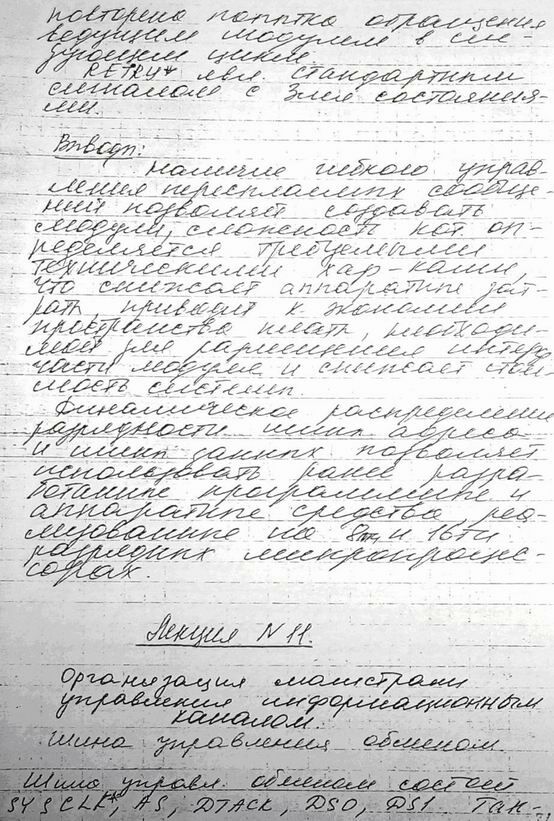 повторена попытка обращения
ведущим модулем в сле-
дующем цикле.
RETRY* явл. стандартным
сигналом с 3мя состояния-
ми.
Выводы:
Наличие гибкого управ-
ления пересылаемых сообще-
ний позволяет создавать
модули, сложность кот. оп-
ределяется требуемыми
техническими хар-ками,
что снижает аппаратные зат-
раты, приводит к экономии
пространства платы, необходи-
мой для размещения интерф.
части модуля и снижает стои-
мость системы.
Динамическое распределение
разрядности шины адреса
и шины данных позволяет
использовать ранее разра-
ботанные программные и
аппаратные средства реа-
лизованные на 8ми и 16ти
разрядных микропроцес-
сорах.
Лекция N 11.
Организация магистрали
управления информационным
каналом.
Шина управления обменом.
Шина управл. обменом состоит
SYSCLK*, AS, DTACK, DS0, DS1. Так-